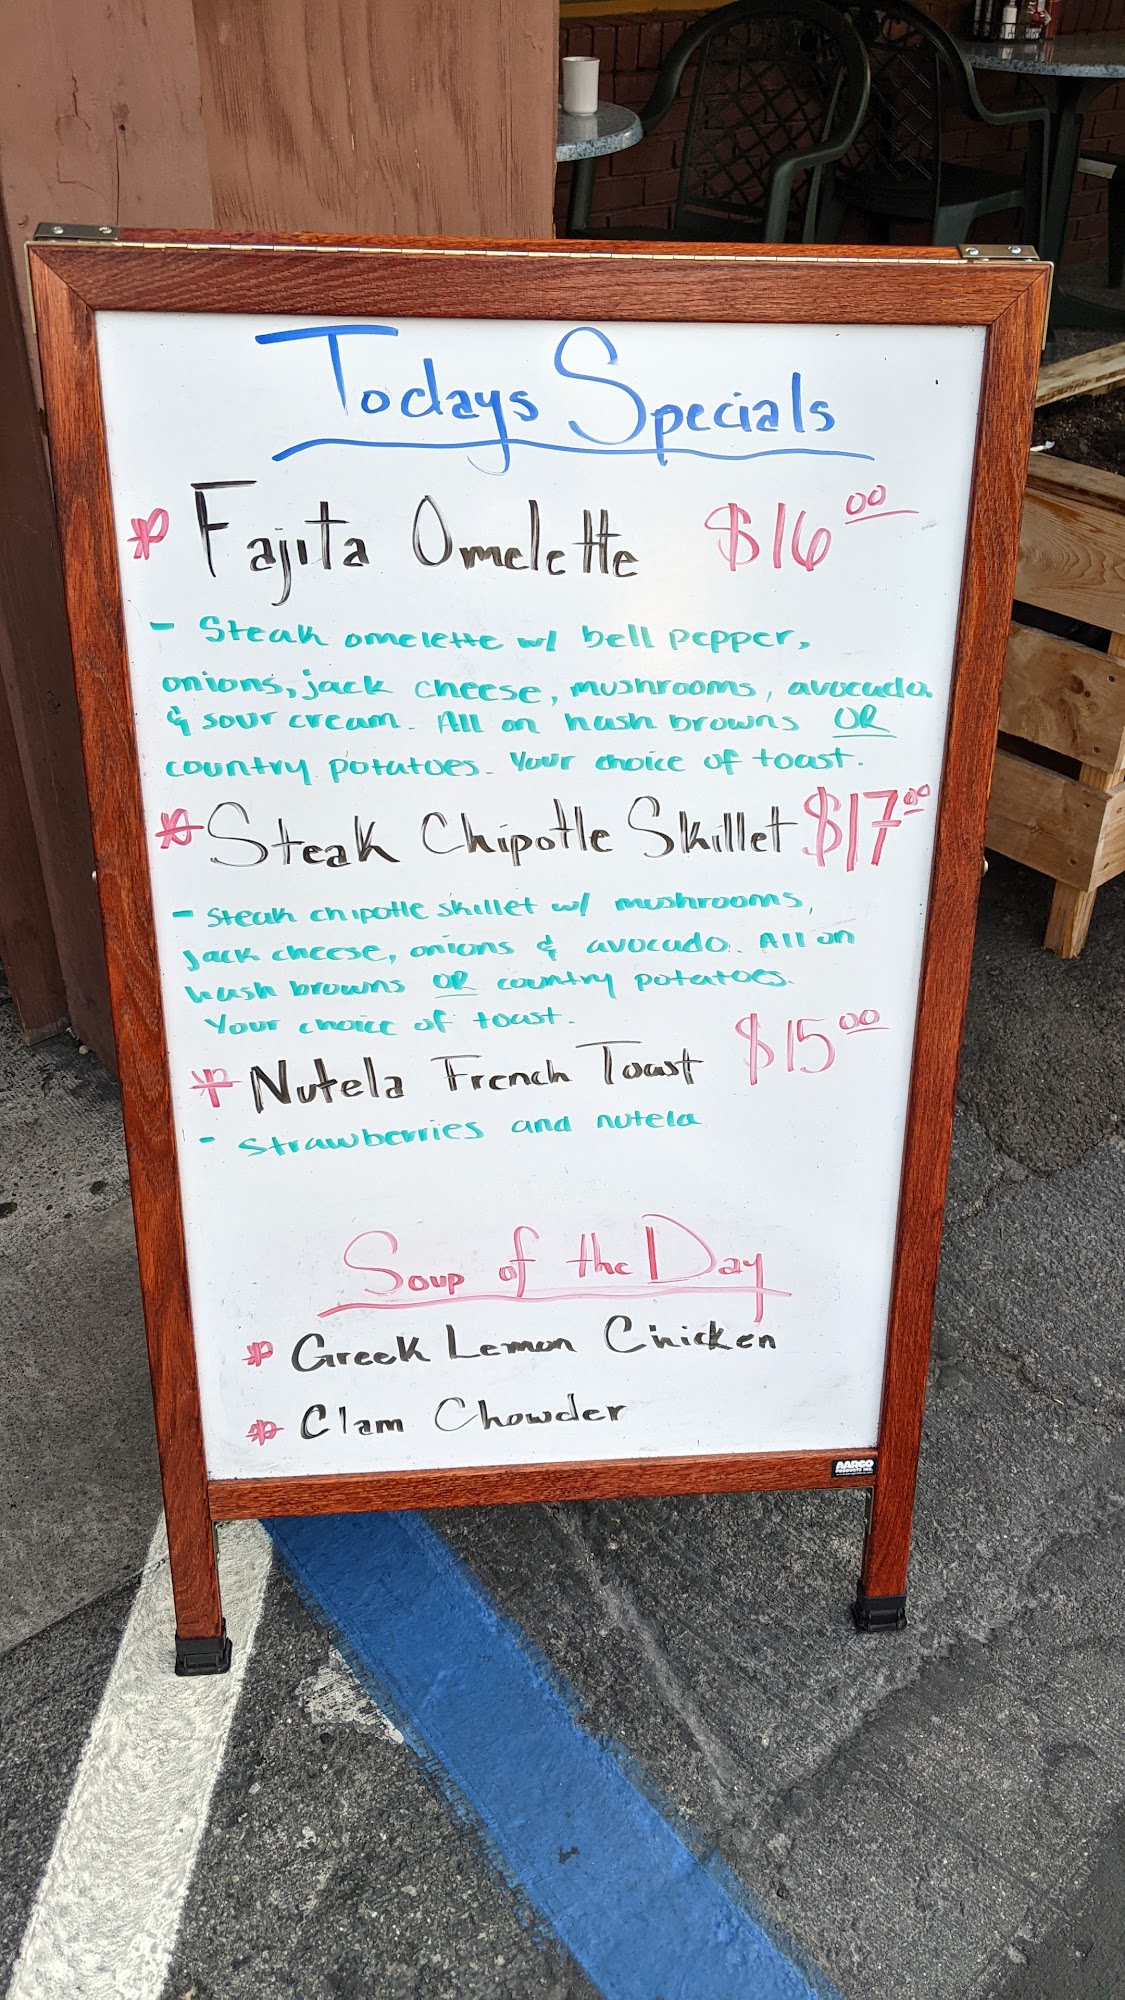 Todays Specials
* Fajita Omelette $16.00
- Steak omelette w/ bell pepper,
onions, jack cheese, mushrooms, avocado
& sour cream. All on hash browns OR
country potatoes. Your choice of toast.
* Steak Chipotle Skillet $17.00
- Steak chipotle skillet w/ mushrooms,
jack cheese, onions & avocado. All on
hash browns OR country potatoes.
Your choice of toast.
* Nutela French Toast $15.00
- Strawberries and nutela
Soup of the Day
* Greek Lemon Chicken
* Clam Chowder
AARCO
PRODUCTS INC.